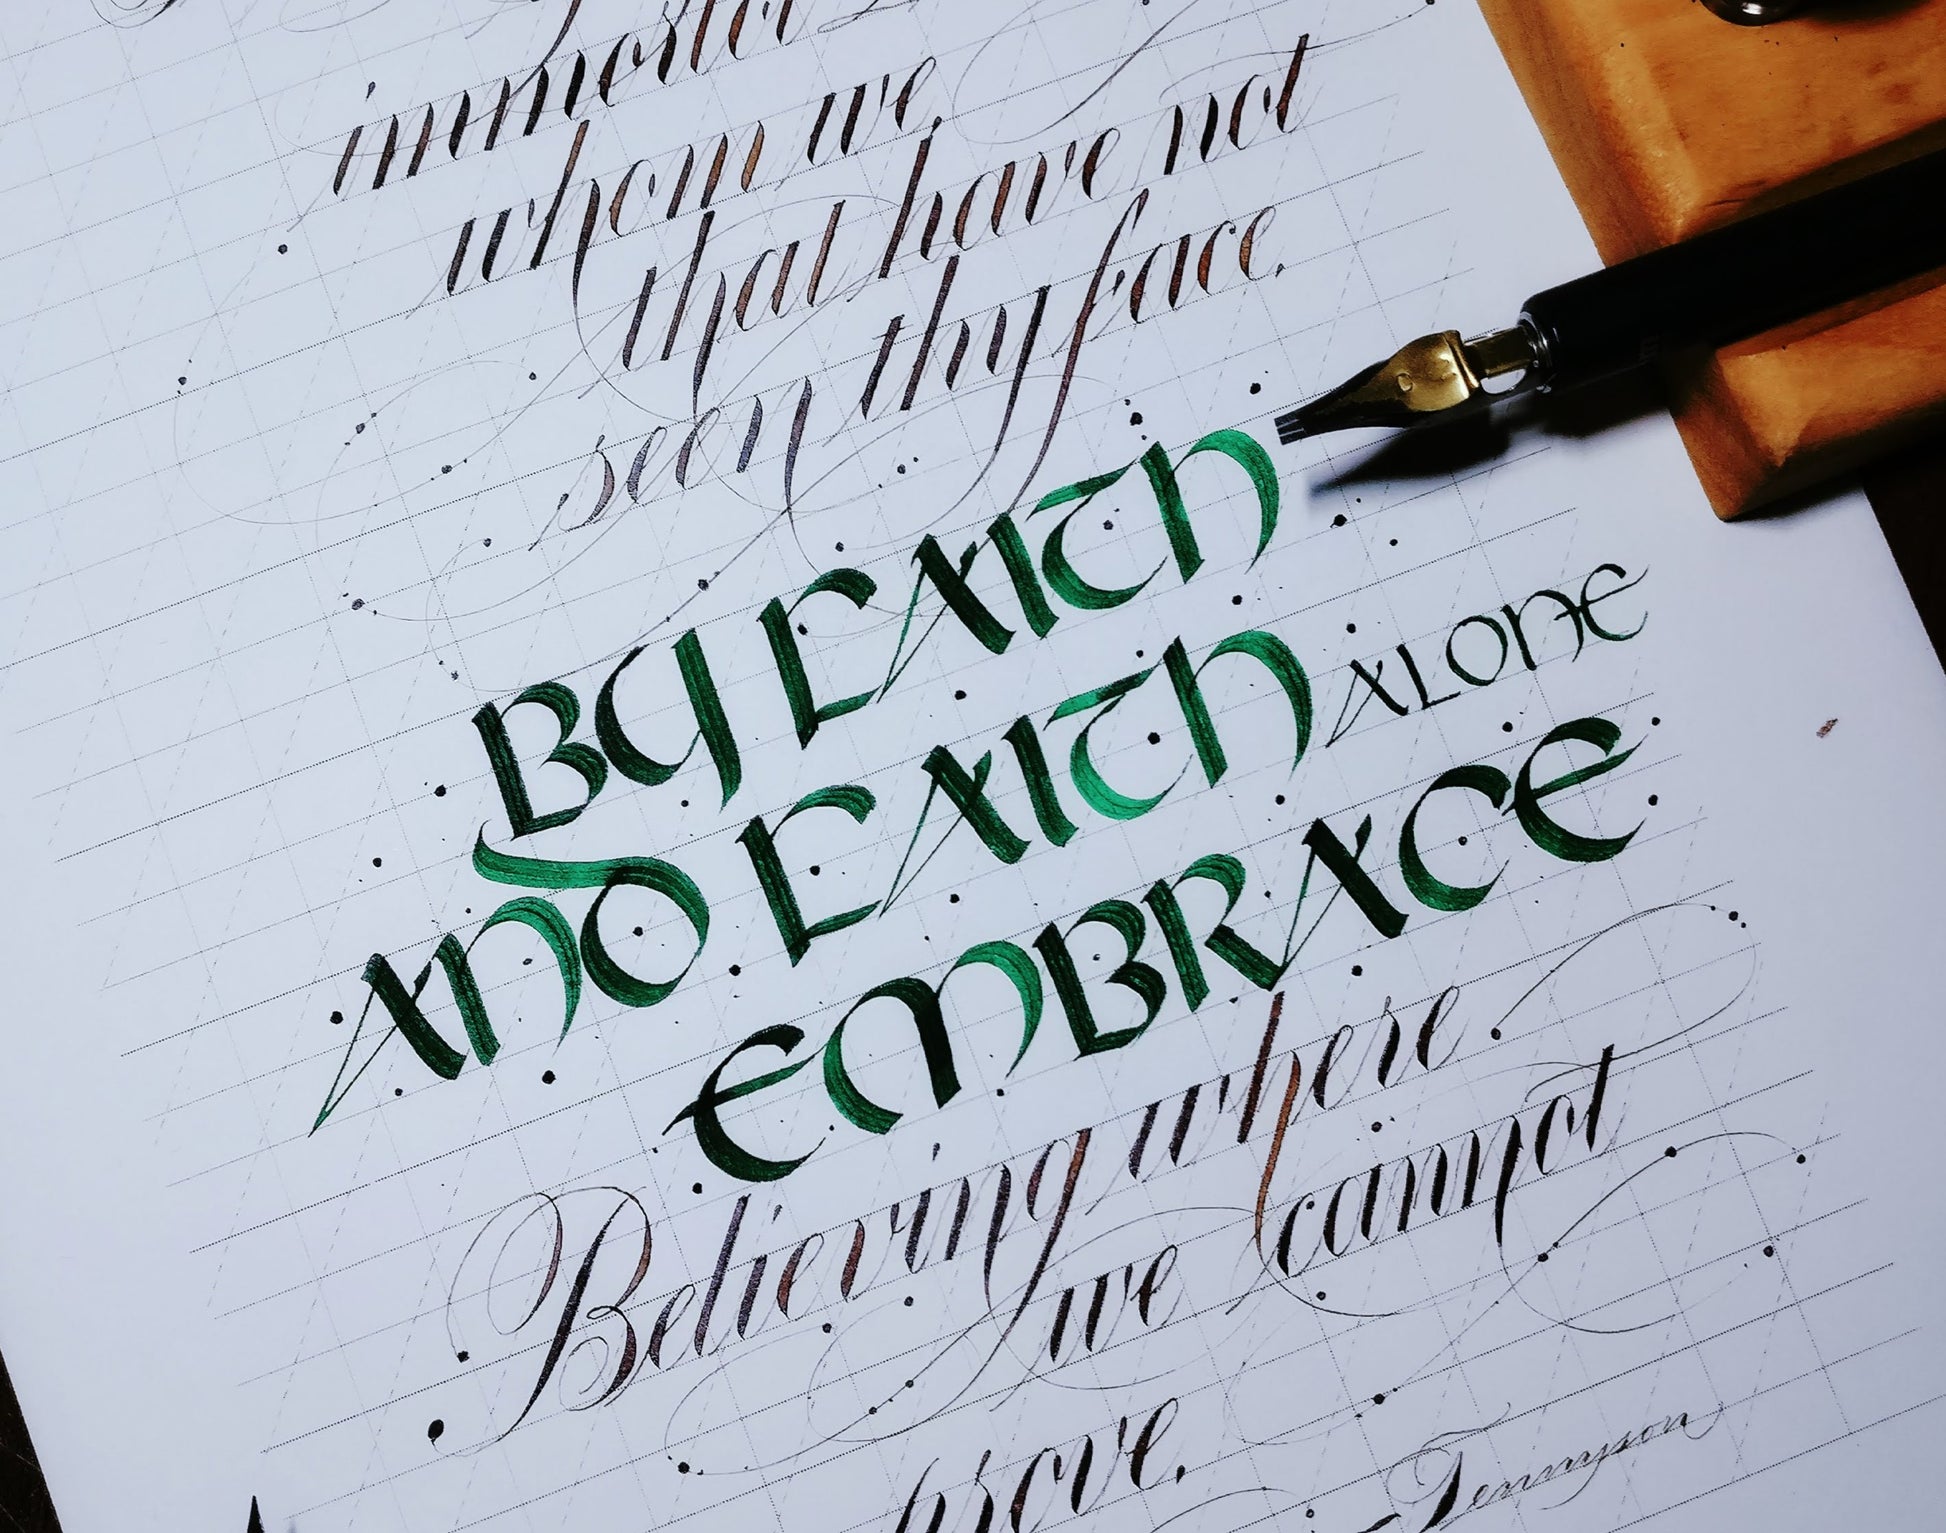 immortal
whom we,
that have not
seen thy face,
BY FAITH
AND FAITH ALONE
EMBRACE
Believing where
we cannot
prove.
Tennyson